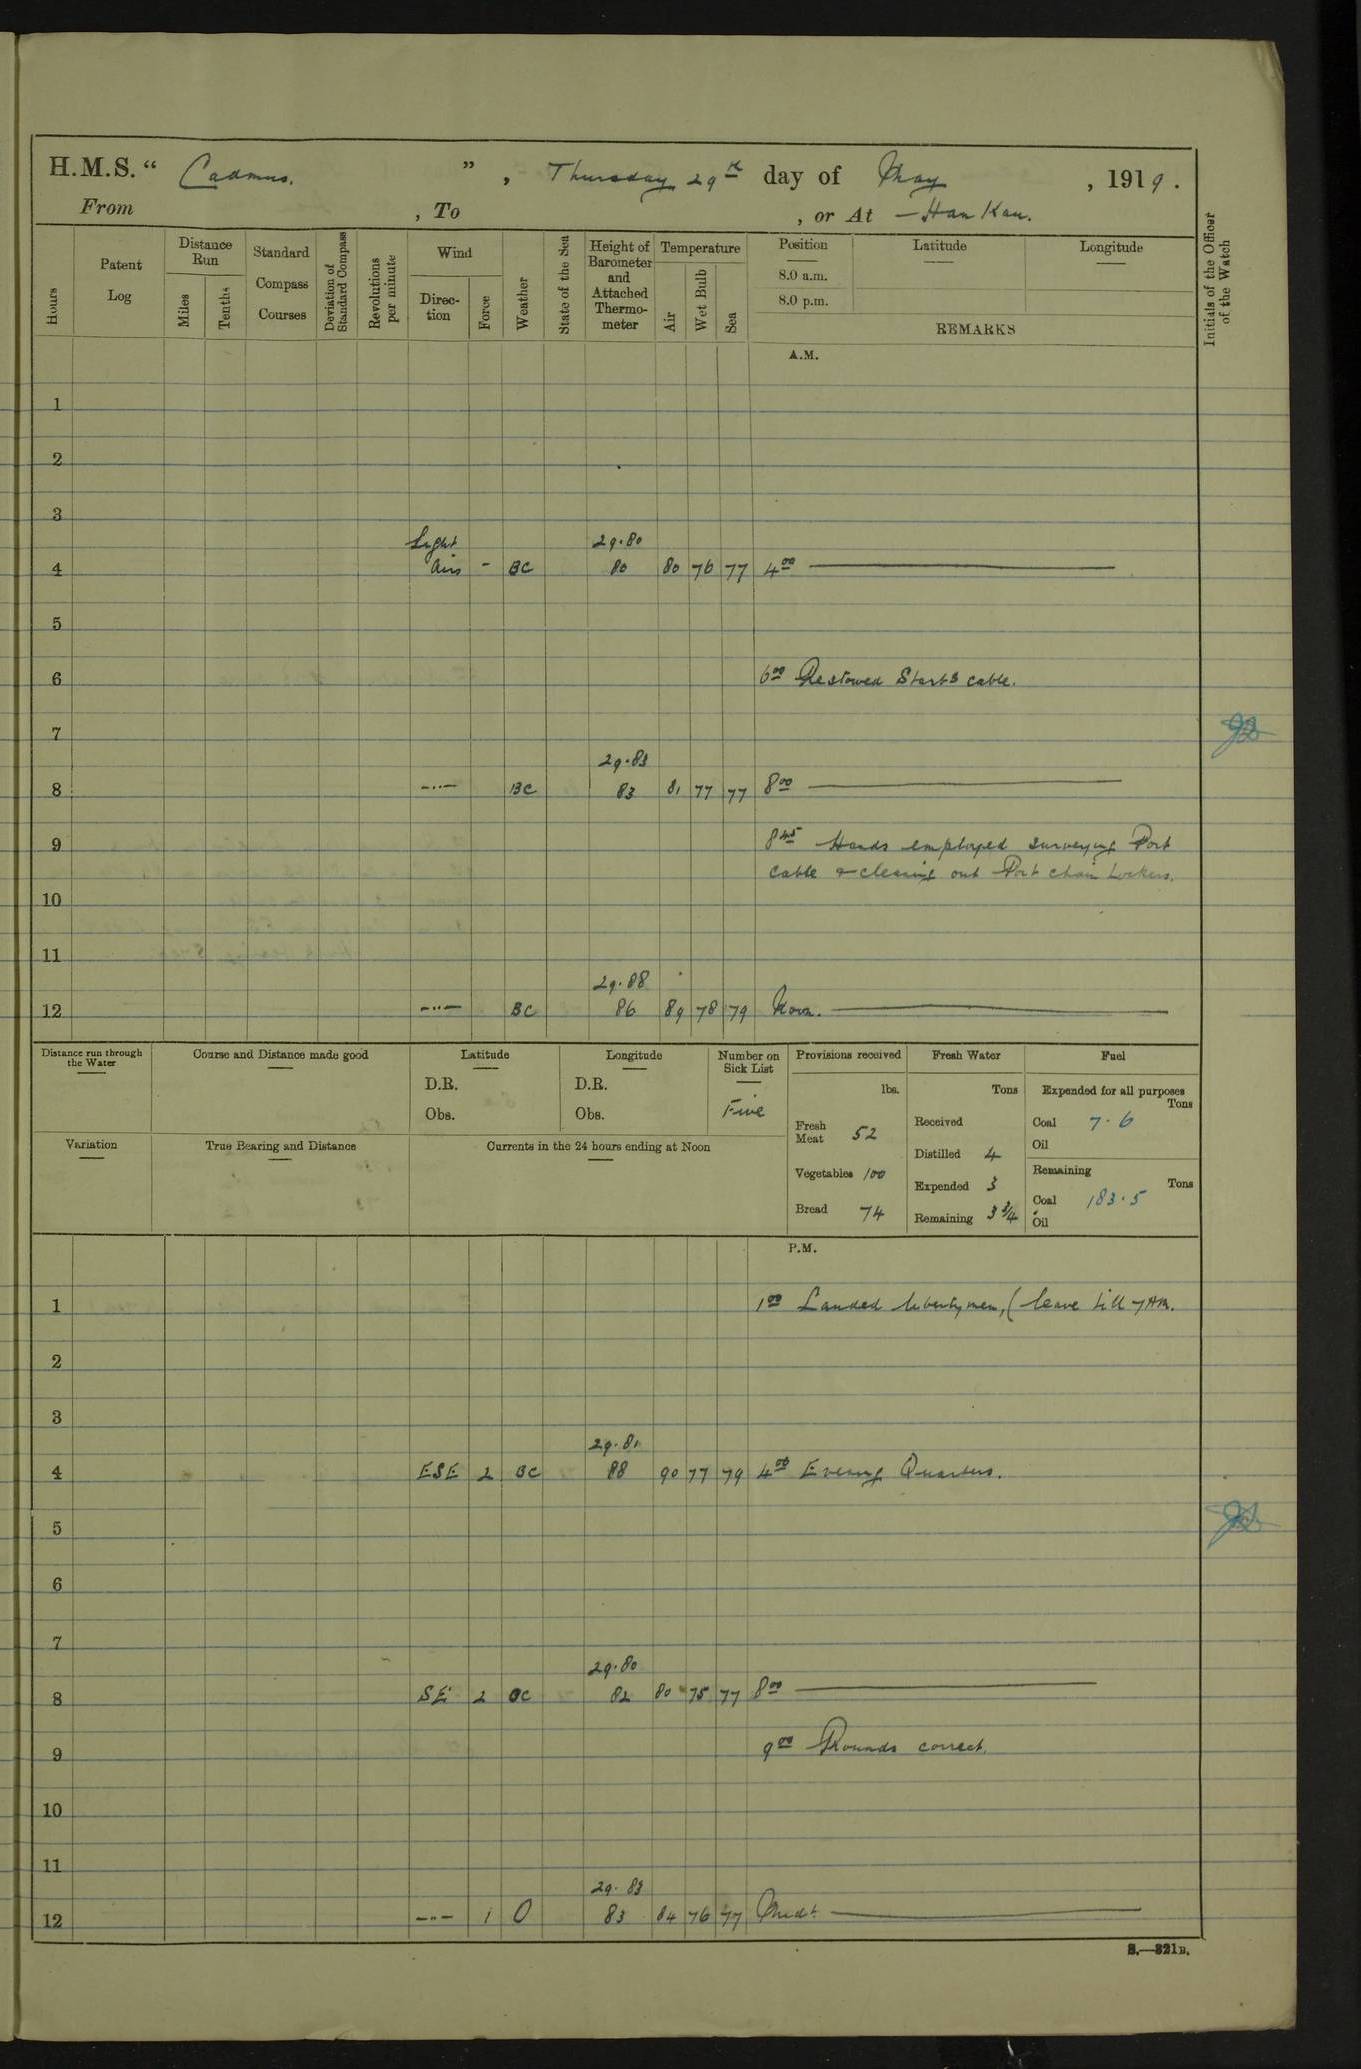 H.M.S. “ Cadmus. ” , Thursday 29th day of May , 1919.
From , To , or At — Han Kau.
Hours
Patent Log
Distance Run
Miles
Tenths
Standard Compass Courses
Deviation of Standard Compass
Revolutions per minute
Wind
Direction
Force
Weather
State of the Sea
Height of Barometer and Attached Thermometer
Temperature
Air
Wet Bulb
Sea
Position
8.0 a.m.
8.0 p.m.
Latitude
Longitude
REMARKS
Initials of the Officer of the Watch
A.M.
1
2
3
Light 29.80
4 airs - BC 80 80 76 77 4.00
5
6 6.00 Restowed Starb cable.
7
29.83
8 —··— BC 83 81 77 77 8.00
9 8.45 Hands employed surveying Port
cable & cleaning out Port chain Lockers.
10
11
29.88
12 —··— BC 86 89 78 79 Noon.
Distance run through the Water
Course and Distance made good
Latitude
D.R.
Obs.
Longitude
D.R.
Obs.
Number on Sick List
Five
Variation
True Bearing and Distance
Currents in the 24 hours ending at Noon
Provisions received
lbs.
Fresh Meat 52
Vegetables 100
Bread 74
Fresh Water
Tons
Received
Distilled 4
Expended 3
Remaining 3 3/4
Fuel
Expended for all purposes
Tons
Coal 7.6
Oil
Remaining
Tons
Coal 183.5
Oil
P.M.
1 1.00 Landed liberty men, (leave till 7 AM.
2
3
29.81
4 ESE 2 BC 88 90 77 79 4.00 Evening Quarters.
5
6
7
29.80
8 SE 2 BC 82 80 75 77 8.00
9 9.00 Rounds correct.
10
11
29.83
12 —··— 1 O 83 84 76 77 Midt.
S.—321B.